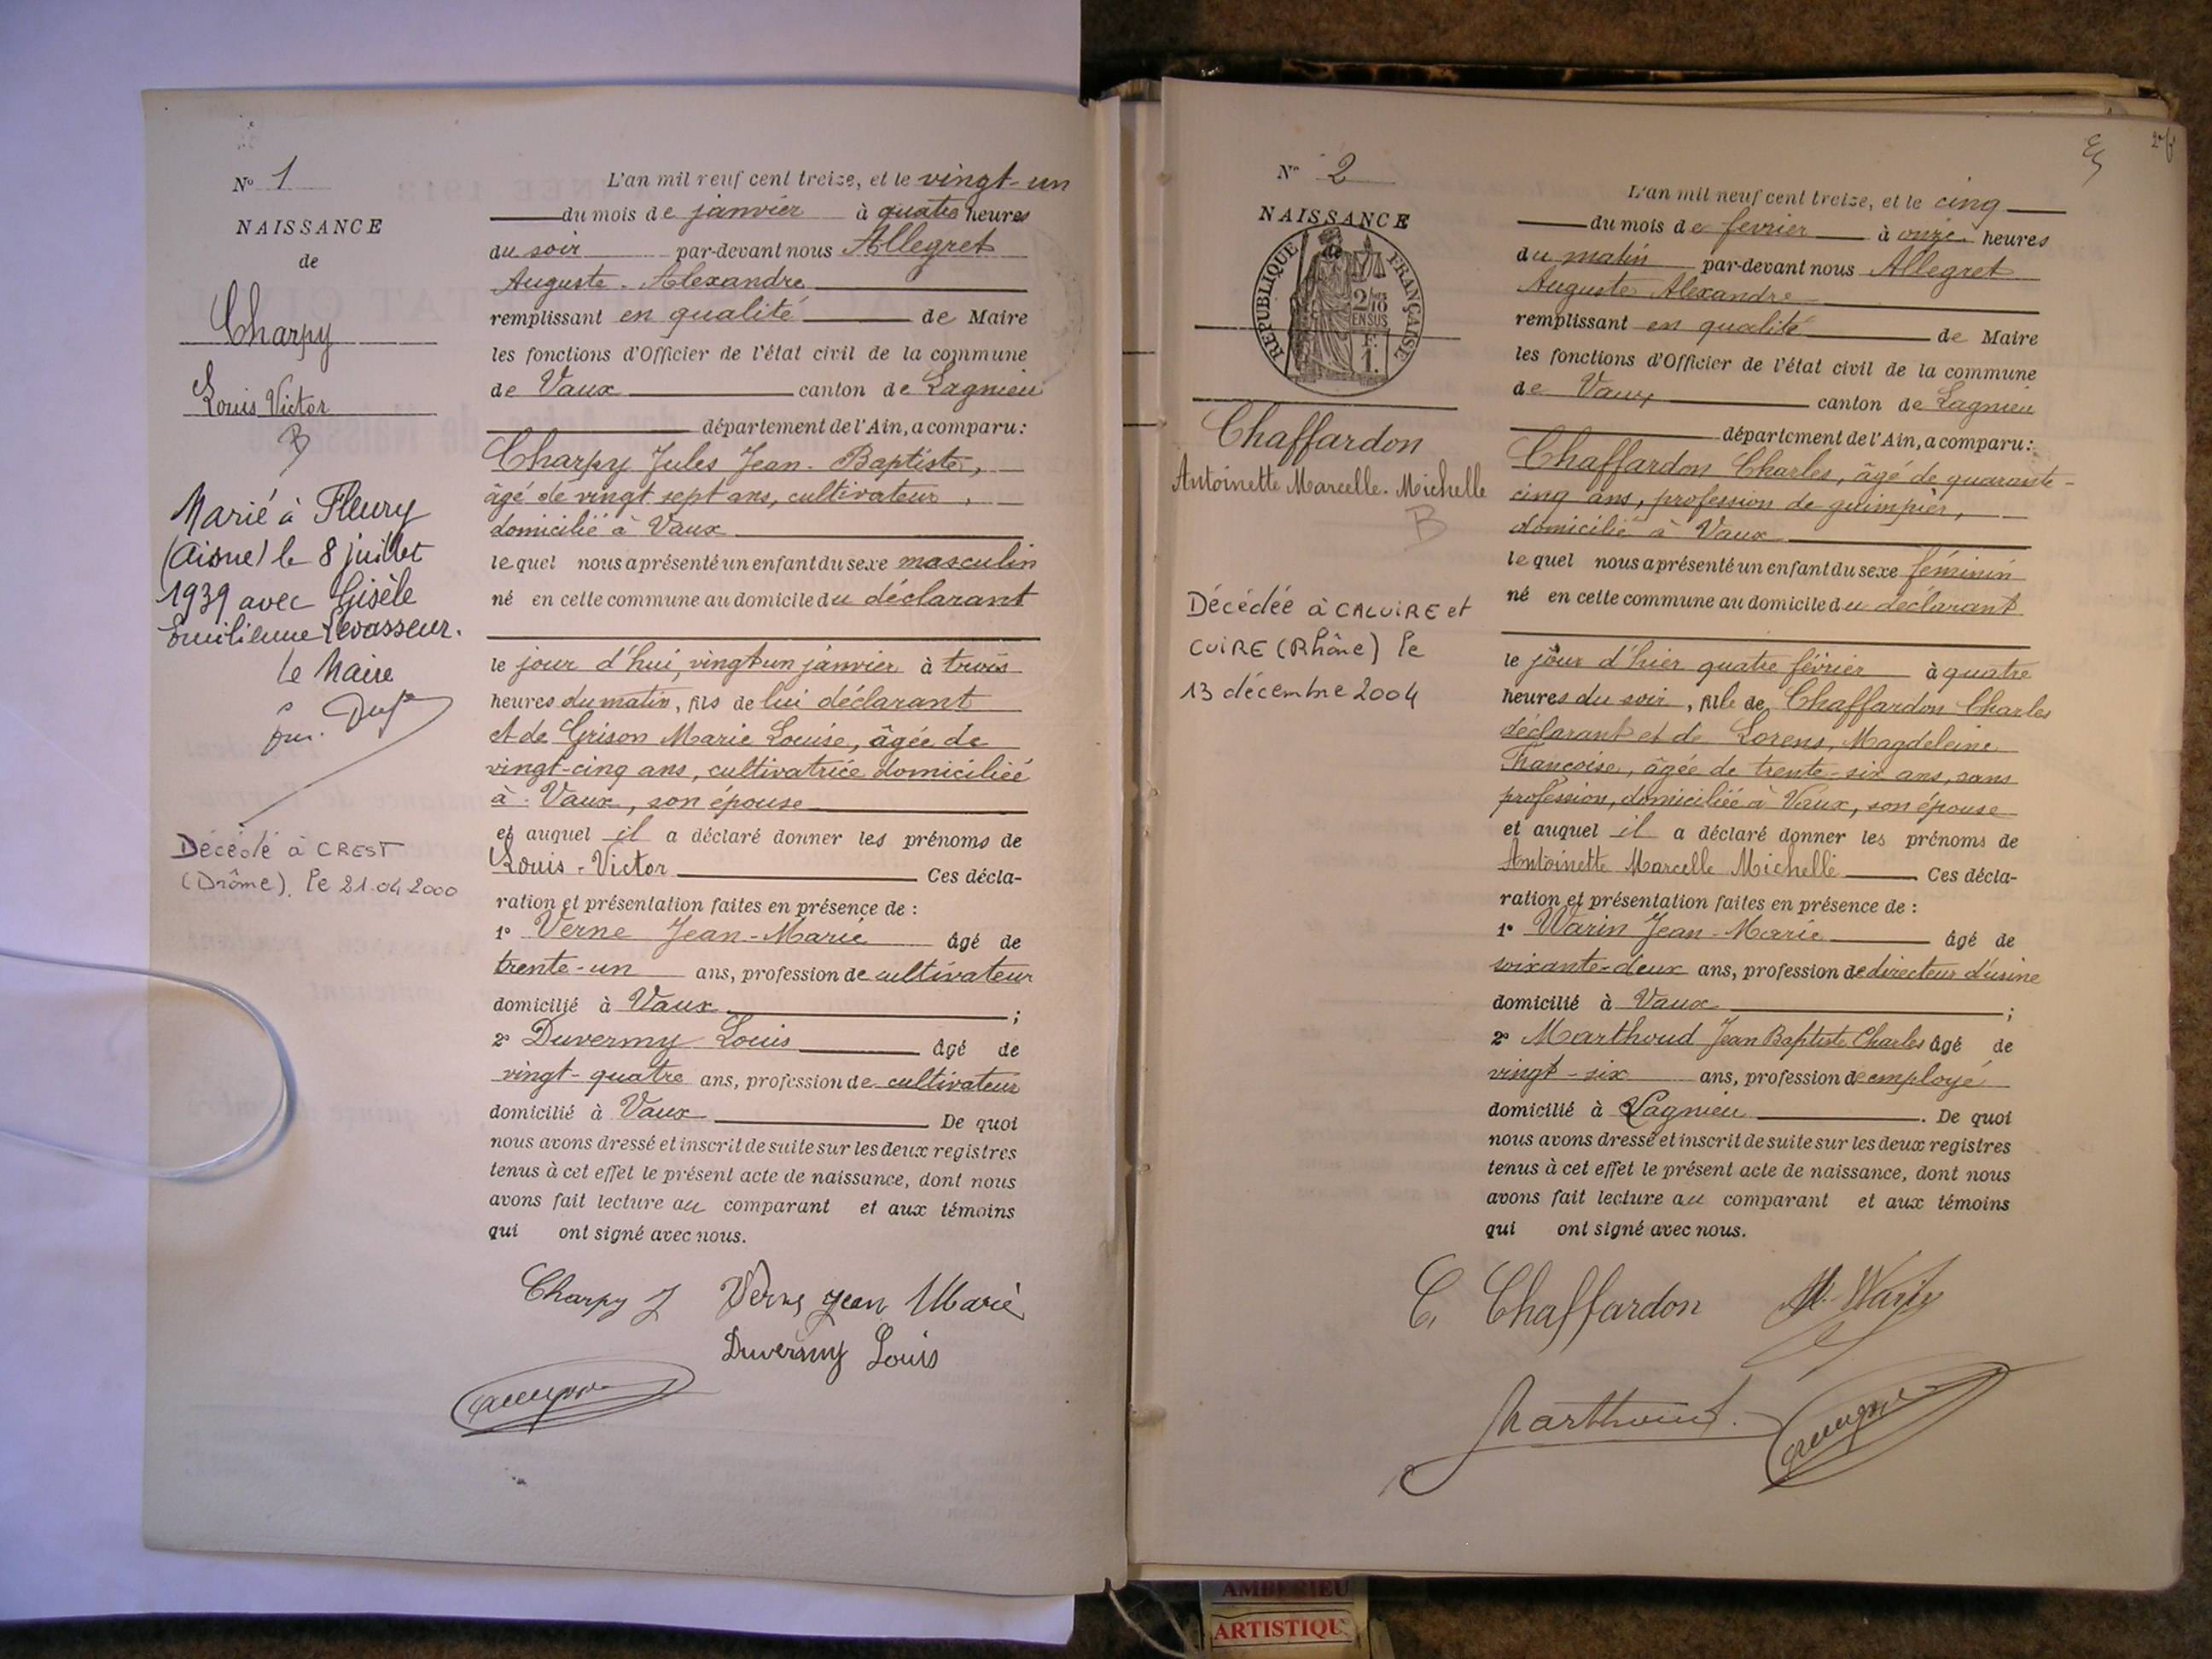 N° 1
NAISSANCE
de
Charpy
Louis Victor
B
Marié à Fleury
(Aisne) le 8 juillet
1939 avec Gisèle
Emilienne Levasseur.
Le Maire
Décédé à CREST
(Drôme). le 21.04.2000
L'an mil neuf cent treize, et le vingt-un
du mois de janvier à quatre heures
du soir par-devant nous Allegret
Auguste-Alexandre
remplissant en qualité de Maire
les fonctions d'Officier de l'état civil de la commune
de Vaux canton de Lagnieu
département de l'Ain, a comparu:
Charpy Jules Jean-Baptiste,
âgé de vingt sept ans, cultivateur,
domicilié à Vaux
lequel nous a présenté un enfant du sexe masculin
né en cette commune au domicile du déclarant
le jour d'hui, vingt un janvier à trois
heures du matin, fils de lui déclarant
et de Grison Marie Louise, âgée de
vingt-cinq ans, cultivatrice domiciliée
à Vaux, son épouse
et auquel il a déclaré donner les prénoms de
Louis-Victor Ces décla-
ration et présentation faites en présence de :
1° Verne Jean-Marie âgé de
trente-un ans, profession de cultivateur
domicilié à Vaux ;
2° Duvermy Louis âgé de
vingt-quatre ans, profession de cultivateur
domicilié à Vaux De quoi
nous avons dressé et inscrit de suite sur les deux registres
tenus à cet effet le présent acte de naissance, dont nous
avons fait lecture au comparant et aux témoins
qui ont signé avec nous.
Charpy J Verne Jean Marie
Duvermy Louis
N° 2
NAISSANCE
de
RÉPUBLIQUE FRANÇAISE
2/10
EN SUS
F.
1.
Chaffardon
Antoinette Marcelle-Michelle
B
Décédée à CALUIRE et
CUIRE (Rhône) le
13 décembre 2004
L'an mil neuf cent treize, et le cinq
du mois de fevrier à onze heures
du matin par-devant nous Allegret
Auguste Alexandre
remplissant en qualité de Maire
les fonctions d'Officier de l'état civil de la commune
de Vaux canton de Lagnieu
département de l'Ain, a comparu:
Chaffardon Charles, âgé de quarante-
cinq ans, profession de guimpier,
domicilié à Vaux
lequel nous a présenté un enfant du sexe féminin
né en cette commune au domicile du déclarant
le jour d'hier quatre février à quatre
heures du soir, fille de Chaffardon Charles
déclarant et de Lorens, Magdeleine
Francoise, âgée de trente-six ans, sans
profession, domiciliée à Vaux, son épouse
et auquel il a déclaré donner les prénoms de
Antoinette Marcelle Michelle Ces décla-
ration et présentation faites en présence de :
1° Warin Jean-Marie âgé de
soixante-deux ans, profession de directeur d'usine
domicilié à Vaux ;
2° Marthoud Jean Baptiste Charles âgé de
vingt-six ans, profession de employé
domicilié à Lagnieu . De quoi
nous avons dressé et inscrit de suite sur les deux registres
tenus à cet effet le présent acte de naissance, dont nous
avons fait lecture au comparant et aux témoins
qui ont signé avec nous.
C. Chaffardon M. Warin
Marthoud.
AMBERIEU
ARTISTIQU